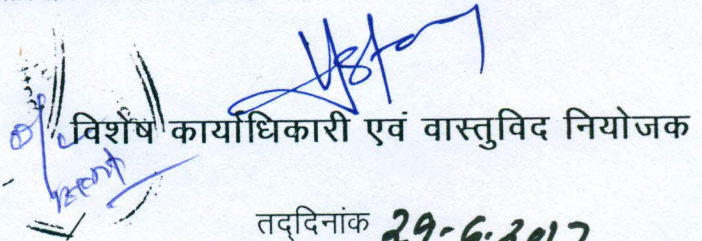 विशेष कार्याधिकारी एवं वास्तुविद नियोजक
तद्दिनांक 29-6-2017